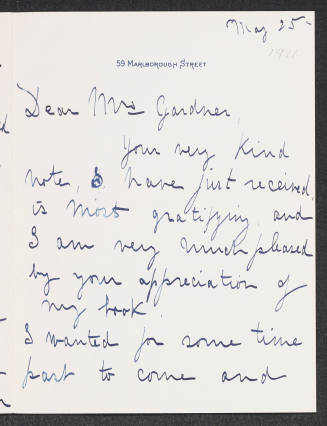 May 25-
1911
59 MARLBOROUGH STREET
Dear Mrs Gardner,
Your very kind
note, I have just received,
is most gratifying and
I am very much pleased
by your appreciation of
my book.
I wanted for some time
past to come and